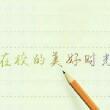 在校的美好时光